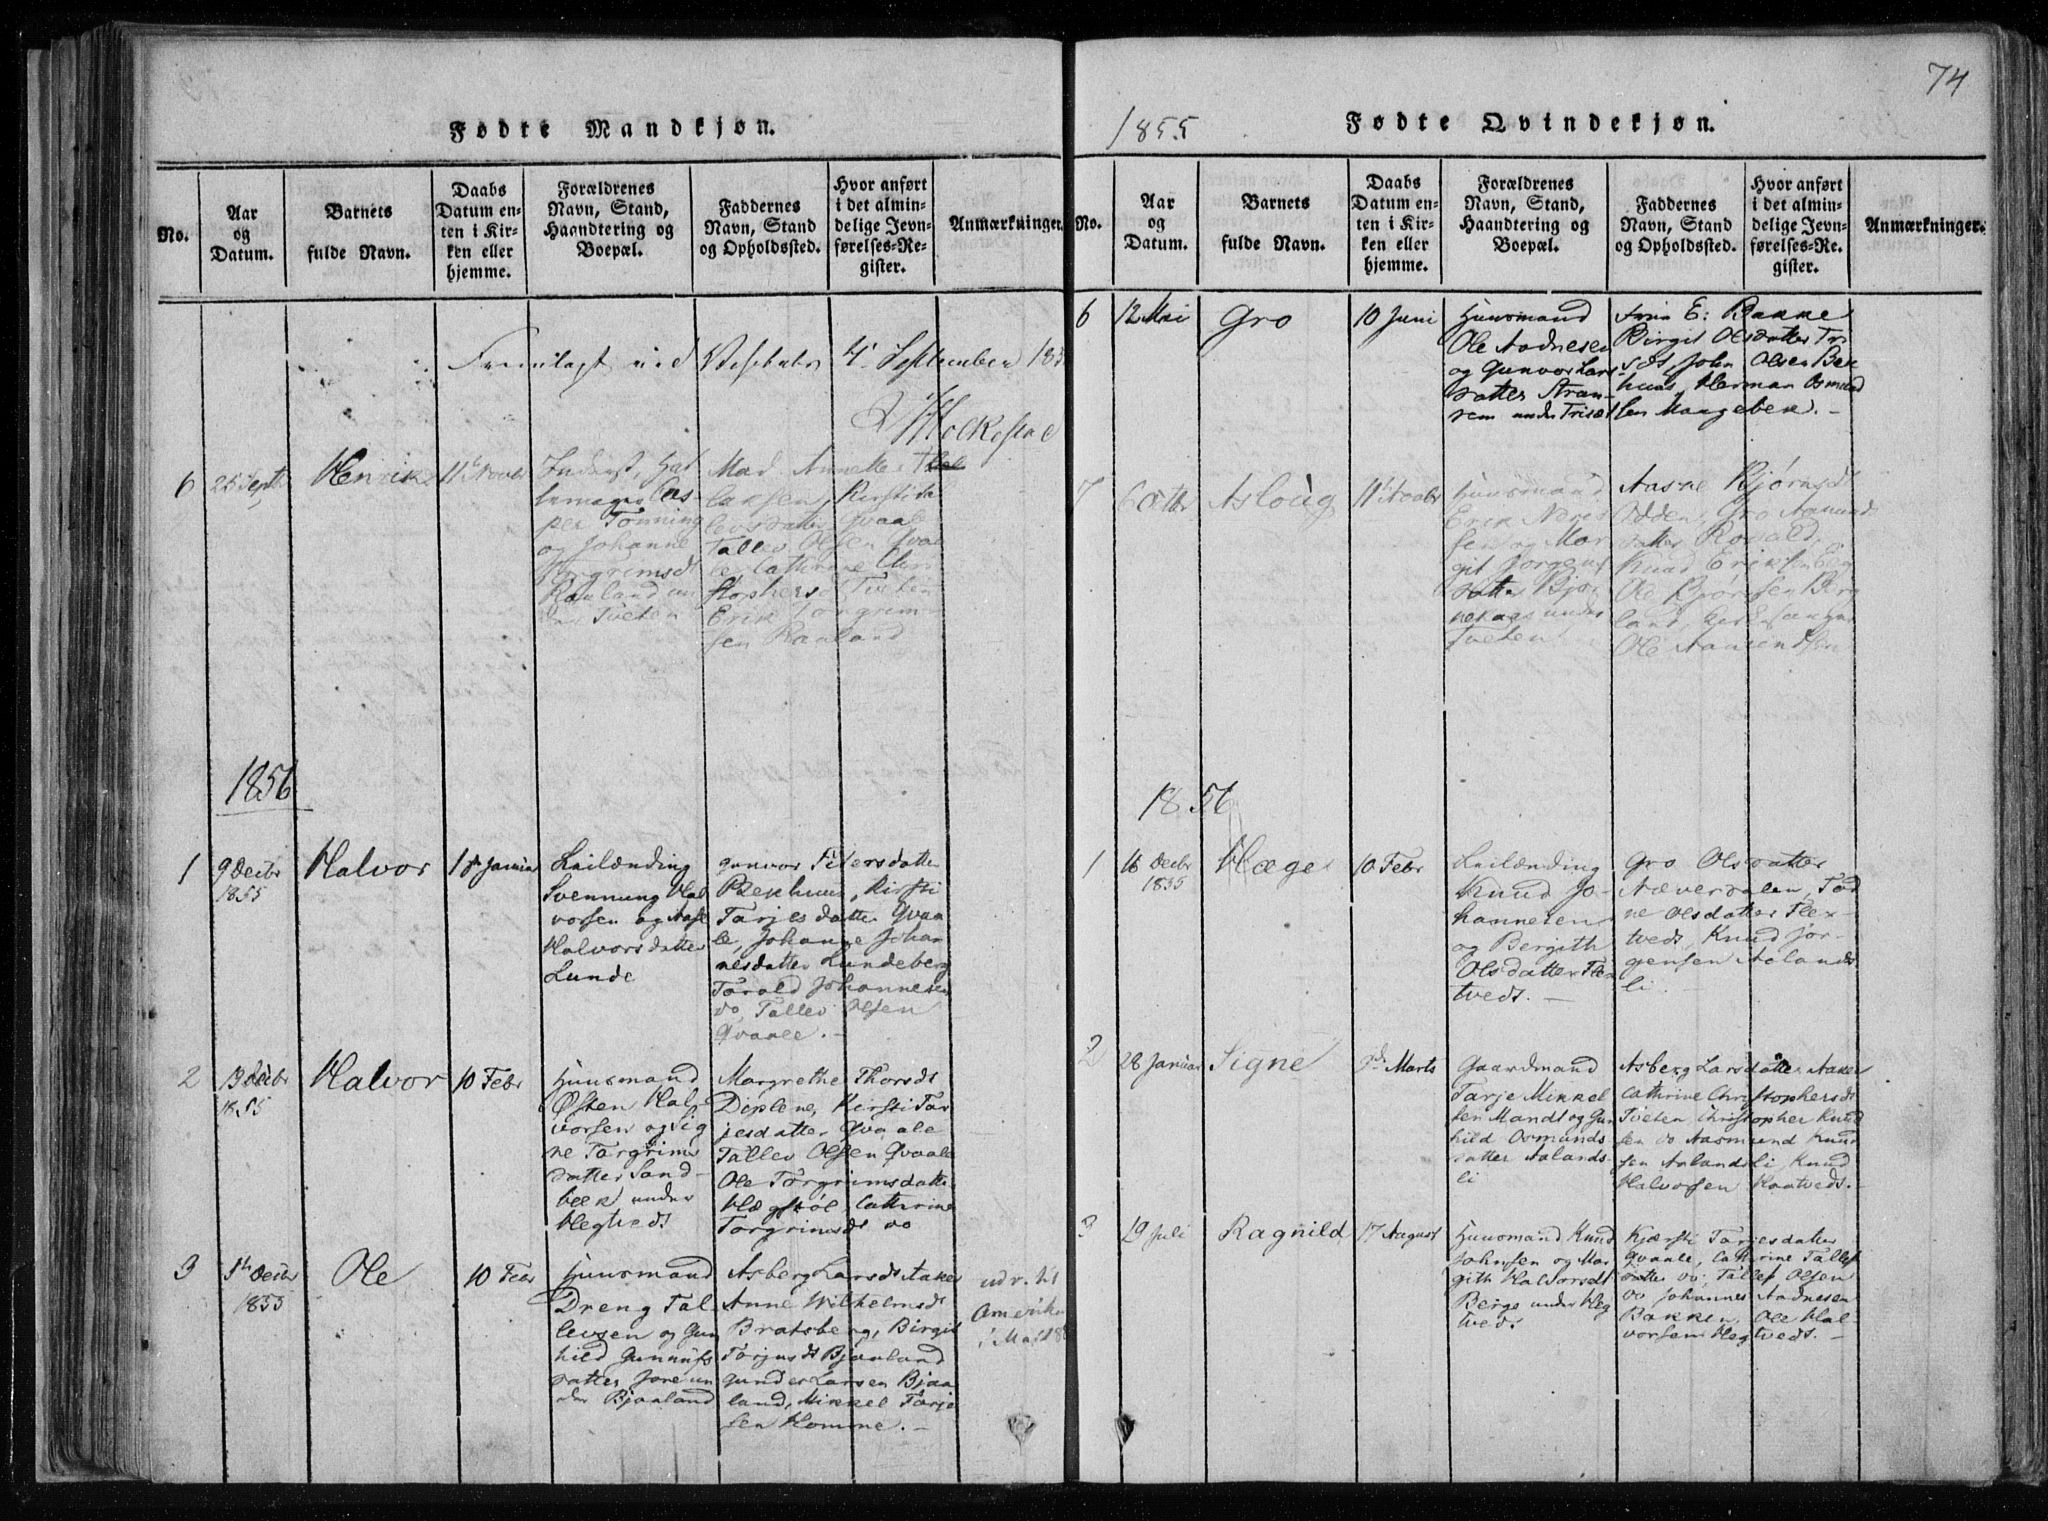 74
Fødte Mandkjøn.
No.
Aar
og
Datum.
Barnets
fulde Navn.
Daabs
Datum en-
ten i Kir-
ken eller
hjemme.
Forældrenes
Navn, Stand,
Haandtering og
Boepæl.
Faddernes
Navn, Stand
og Opholdssted.
Hvor anført
i det almin-
delige Jevn-
førelses-Re-
gister.
Anmærkninger.
Fremlagt ved Visitats 4 September 185
6
25 Septbr
Henrik
11t Novbr
Johanne
Torgrimsd
Rauland un
der Tveten
Mad. Annette
Kirsti Ta
levsdatter Qvaale
Tallev Olsen Qvaa
le, Cathrine Chri
stophersd Tveten
Erik Torgrim
sen Rauland
1856
1
9 Decbr
1855
Halvor
18 Januar
Leilænding
Svennung Hal
vorsen og Aase
Halvorsdatter
Lunde
Gunvor Petersdatter
Bekhuus, Kirsti
Tarjesdatter Qvaa
le, Johanne Johan
nesdatter Lundeberg
Torold Johannesen
do, Tallev Olsen
Qvaale. -
2
13 Decbr
1855
Halvor
10 Febr
Huusmand
Østen Hal
vorsen og Sig
ne Torgrims
datter Sand-
bek under
Hegtvedt
Margrethe Thorsd
Diplene, Kirsti Tar
jesdatter Qvaale
Tallev Olsen Qvaale
Ole Torgrimsdatter
Hægstøl, Cathrine
Torgrimsdt do
3
Decbr
1855
Ole
10 Febr
Huusmand
Dreng Tal
levsen og Gun
hild Gunnufs
datter Jore un
der Bjaaland
Asberg Larsdt Aaker
Anne Wilhelmsdt
Bratsberg, Birgit
Torjusdt Bjaaland
Gunder Larsen Bjaa
land, Mikkel Tarje
sen Homme. -
udv. til
Amerika
i Mai 188
1855
Fødte Qvindekjøn.
No.
Aar
og
Datum.
Barnets
fulde Navn.
Daabs
Datum en-
ten i Kir-
ken eller
hjemme.
Forældrenes
Navn, Stand,
Haandtering og
Boepæl.
Faddernes
Navn, Stand
og Opholdssted.
Hvor anført
i det almin-
delige Jevn-
førelses-Re-
gister.
Anmærkninger.
6
12 Mai
Gro
10 Juni
Huusmand
Ole Aadnesen
og Gunvor Lars-
datter Stran-
rem under Trisæt
E: Bakke
Birgit Olsdatter Tri
sæt, John Olsen Bek
huus, Herman Osmund
sen Haugebek. -
7
6 Octbr
Asloug
11t Novbr
Huusmand
Erik Neris
sen og Mar
git Jørgens
datter Bjør
nekaas under
Tveten
Aasne Bjørnsdt
Odden, Gro Aamund
datter Rovald,
Knud Eriksen
Ole Bjørnsen Berg
land,
Ole Aamundsen
1856
1
16 Decbr
1855
Hæge
10 Febr
Leilænding
Knud Jo-
hannesen
og Bergith
Olsdatter Flek
tvedt. -
Gro Olsdatter
Næverdalen, Tod
ne Olsdatter Flek-
tvedt, Knud Jør-
gensen Aalands
li. -
2
28 Januar
Signe
9de Marts
Gaardmand
Tarje Mikkel
sen Mandt og Gun
hild Osmunds
datter Aalands-
li
Asberg Larsdatter Aaker
Cathrine Christophersdt
Tveten Christopher Knud
sen do Aasmund Knud
sen Aalandsli, Knud
Halvorsen Kaatvedt. -
3
19 Juli
Ragnild
17 August
Huusmand Knud
Johnsen og Mar
gith Halvorsdt
Berge under Heg
tvedt
Kjærsti Tarjesdatter
Qvaale, Cathrine Tallef
datter do, Tallef Olsen
do Johannes Aadnesen
Bakken, Ole Hal
vorsen Hegtvedt. -